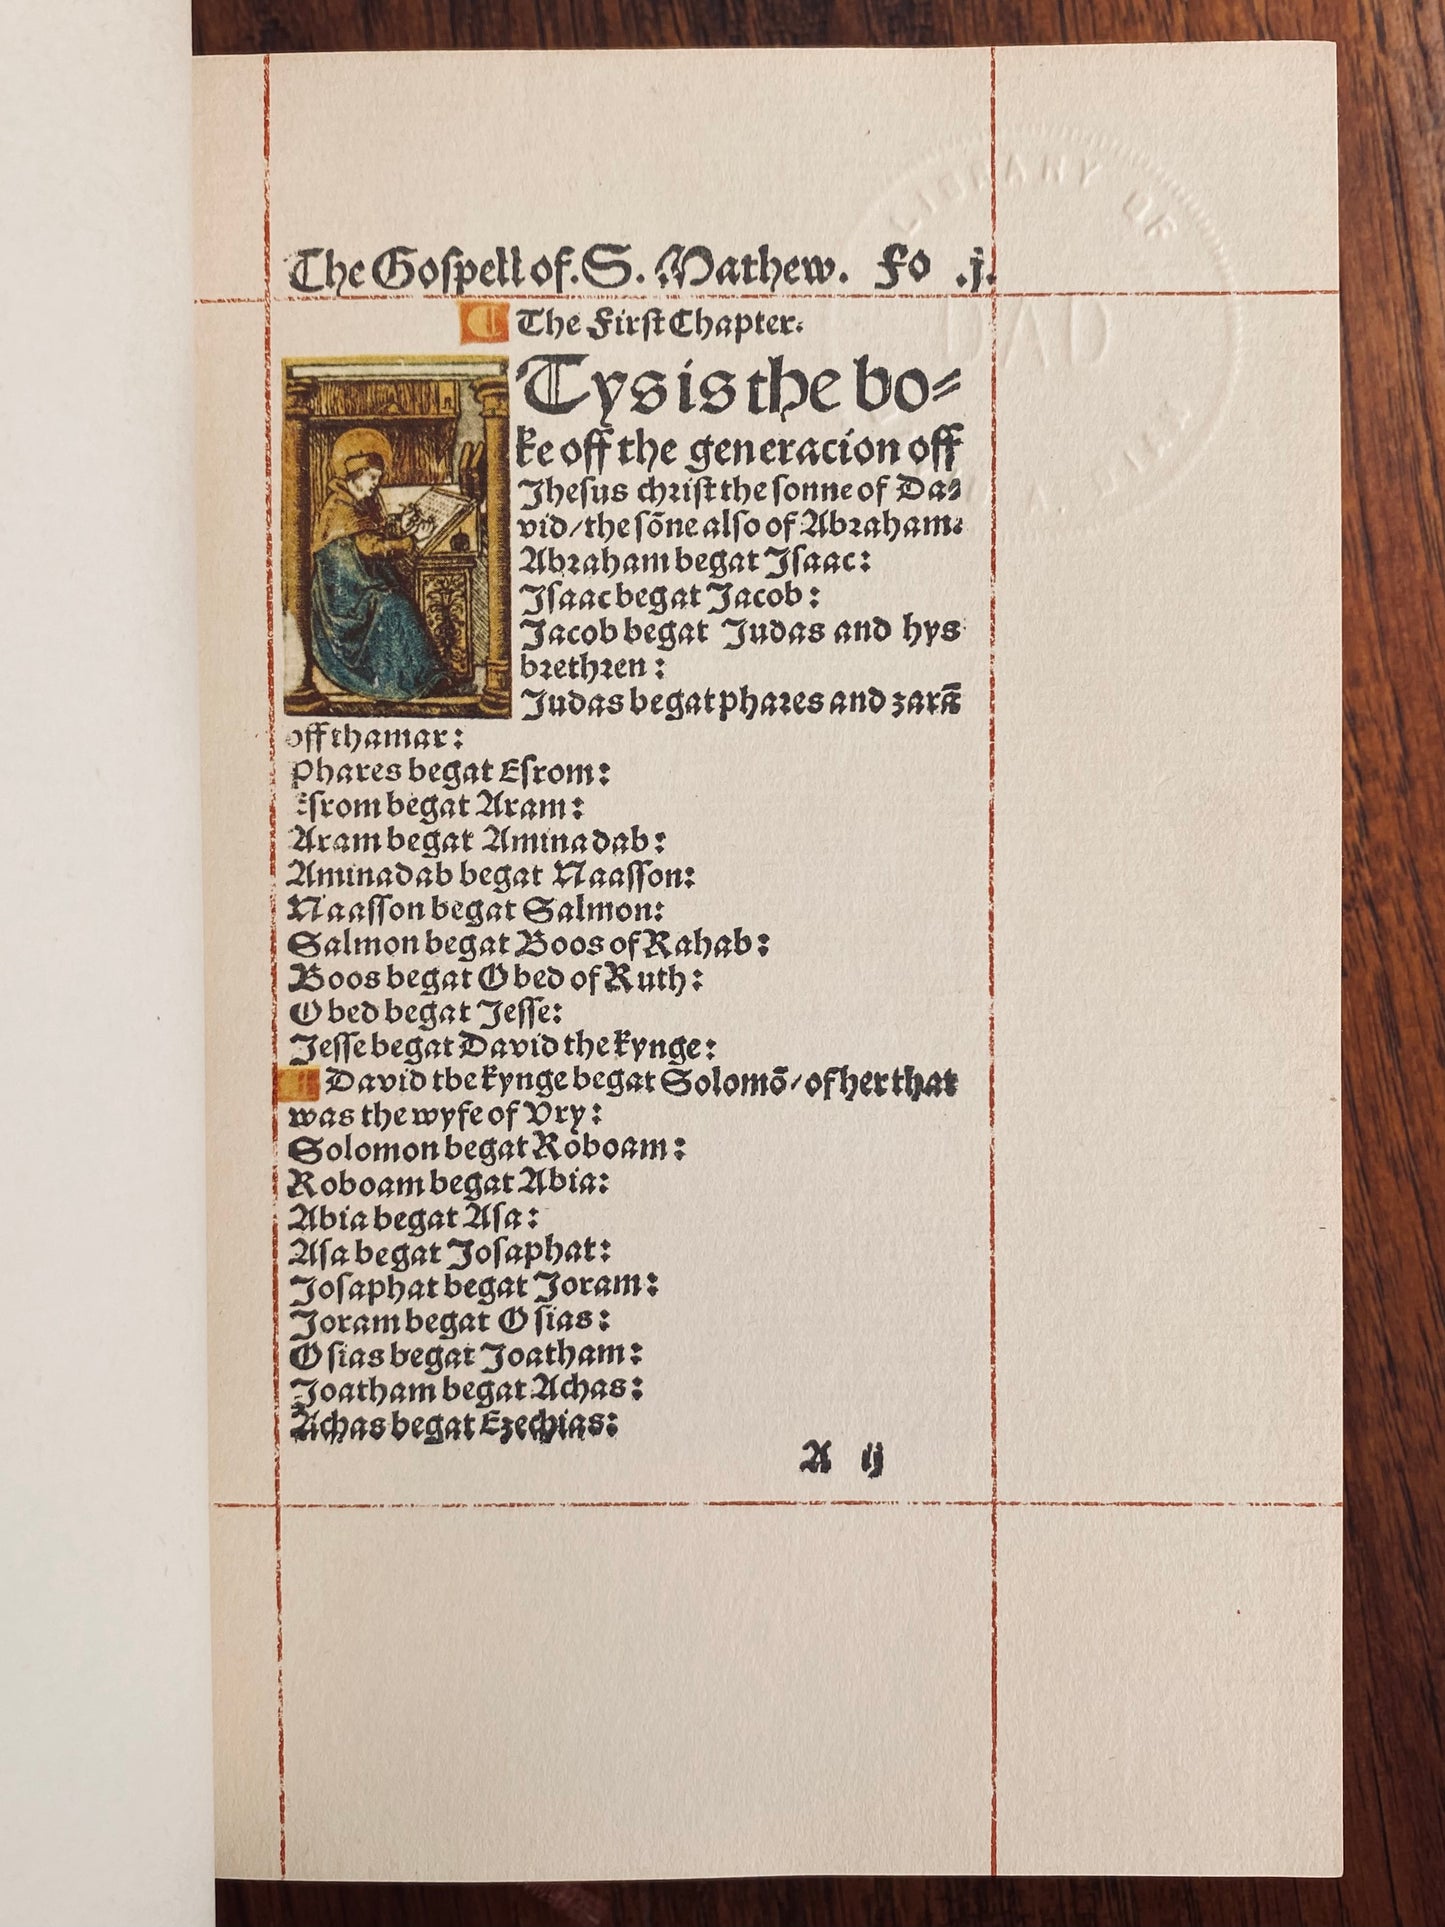 The Gospell of. S. Mathew. Fo .j.
The First Chapter.
Tys is the bo⸗
ke off the generacion off
Jhesus christ the sonne of Da⸗
vid/the sõne also of Abraham:
Abraham begat Isaac:
Isaac begat Jacob:
Jacob begat Judas and hys
brethren:
Judas begat phares and zarã
off thamar:
Phares begat Esrom:
Esrom begat Aram:
Aram begat Aminadab:
Aminadab begat Naasson:
Naasson begat Salmon:
Salmon begat Boos of Rahab:
Boos begat Obed of Ruth:
Obed begat Jesse:
Jesse begat David the kynge:
David the kynge begat Solomõ/of her that
was the wyfe of Vry:
Solomon begat Roboam:
Roboam begat Abia:
Abia begat Asa:
Asa begat Josaphat:
Josaphat begat Joram:
Joram begat Osias:
Osias begat Joatham:
Joatham begat Achas:
Achas begat Ezechias:
A ij
LIBRARY OF